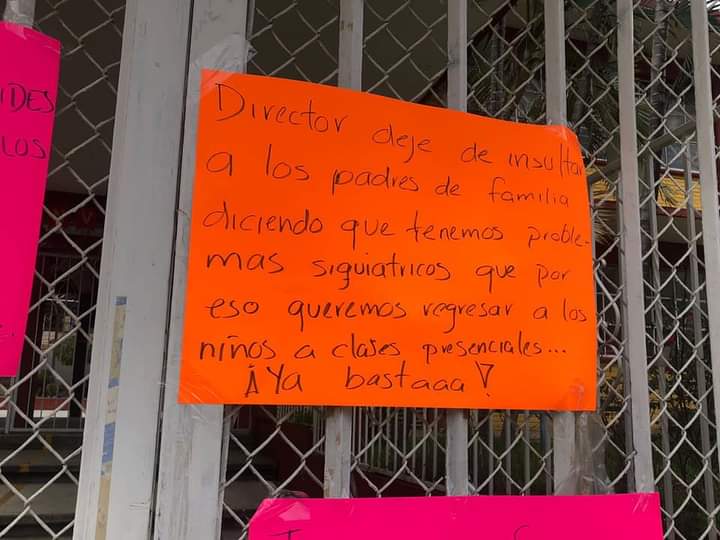 IDES
LOS
Director deje de insultar
a los padres de familia
diciendo que tenemos proble-
mas siguiatricos que por
eso queremos regresar a los
niños a clases presenciales...
¡Ya bastaaa!